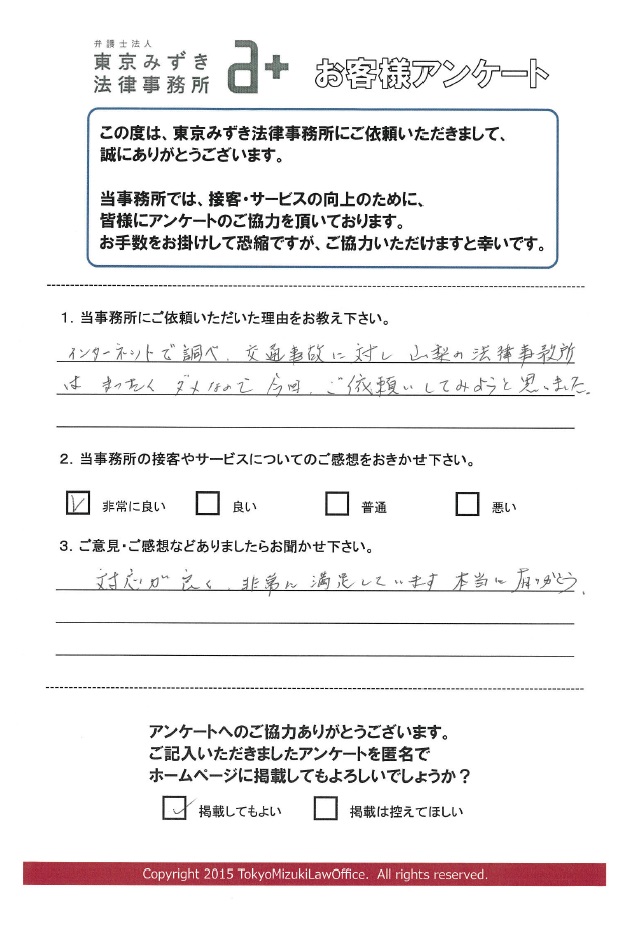 弁護士法人
東京みずき
法律事務所
a+
お客様アンケート
この度は、東京みずき法律事務所にご依頼いただきまして、
誠にありがとうございます。
当事務所では、接客・サービスの向上のために、
皆様にアンケートのご協力を頂いております。
お手数をお掛けして恐縮ですが、ご協力いただけますと幸いです。
1. 当事務所にご依頼いただいた理由をお教え下さい。
インターネットで調べ、交通事故に対し 山梨の法律事務所
は まったく ダメなので 今回、ご依頼いしてみようと思いました。
2. 当事務所の接客やサービスについてのご感想をおきかせ下さい。
非常に良い 良い 普通 悪い
3. ご意見・ご感想などありましたらお聞かせ下さい。
対応が良く、非常に満足しています 本当に有りがとう。
アンケートへのご協力ありがとうございます。
ご記入いただきましたアンケートを匿名で
ホームページに掲載してもよろしいでしょうか?
掲載してもよい 掲載は控えてほしい
Copyright 2015 TokyoMizukiLawOffice. All rights reserved.